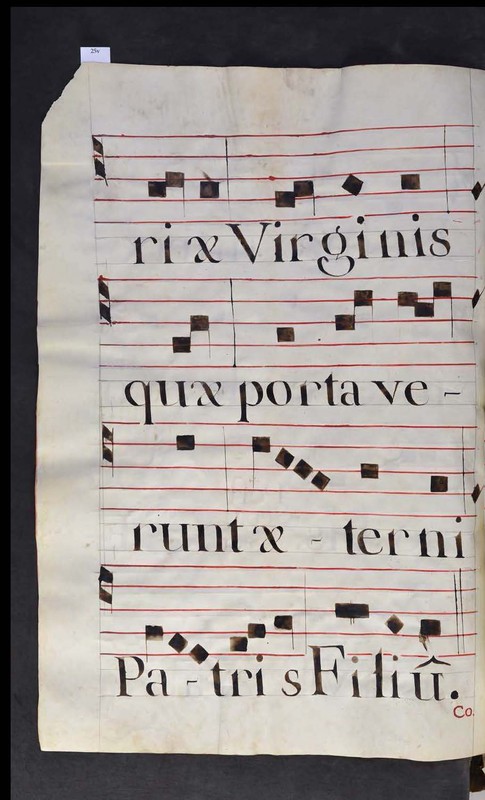 25v
riæ Virginis
quæ portave-
runt æ-terni
Pa-tris Filiû.
Co.